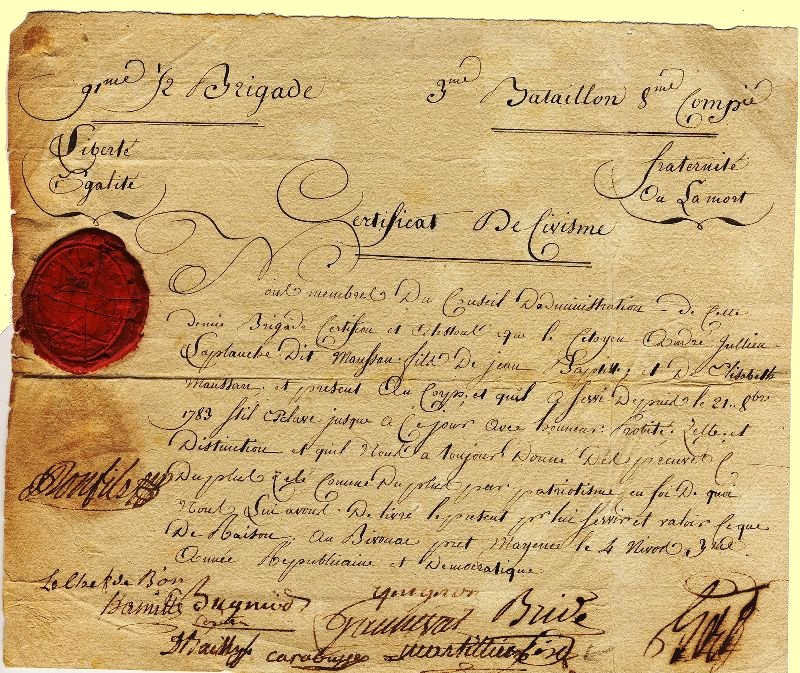 91me 1/2 Brigade 3me Bataillon 8me Compie
Liberté
Egalité
fraternité
Ou La mort
Certificat De Civisme
Nous membres Du Conseil Dadministration De Cette
demie Brigade Certifion et attestons que le Citoyen André Jullien
Laplanche Dit Maussan fils De jean Baptte et D Elisabeth
Maussan, et présent Au Corps, et quil a servi Depuis le 21 8bre
1783 stil Esclave jusque a Ce jour avec honneur Probité Zelle et
Distinction et quil Nous a toujours Donné Des preuves
Du plus Zelé Comme Du plus pur patriotisme en foi De quoi
Nous Lui avons De livré le présent pr lui servir et valoir Ce que
De Raison, Au Bivouac pret Mayence le 4 Nivos, 3me
Année Republicaine et Democratique
Bonfils
Le Chef de B'on
Brive